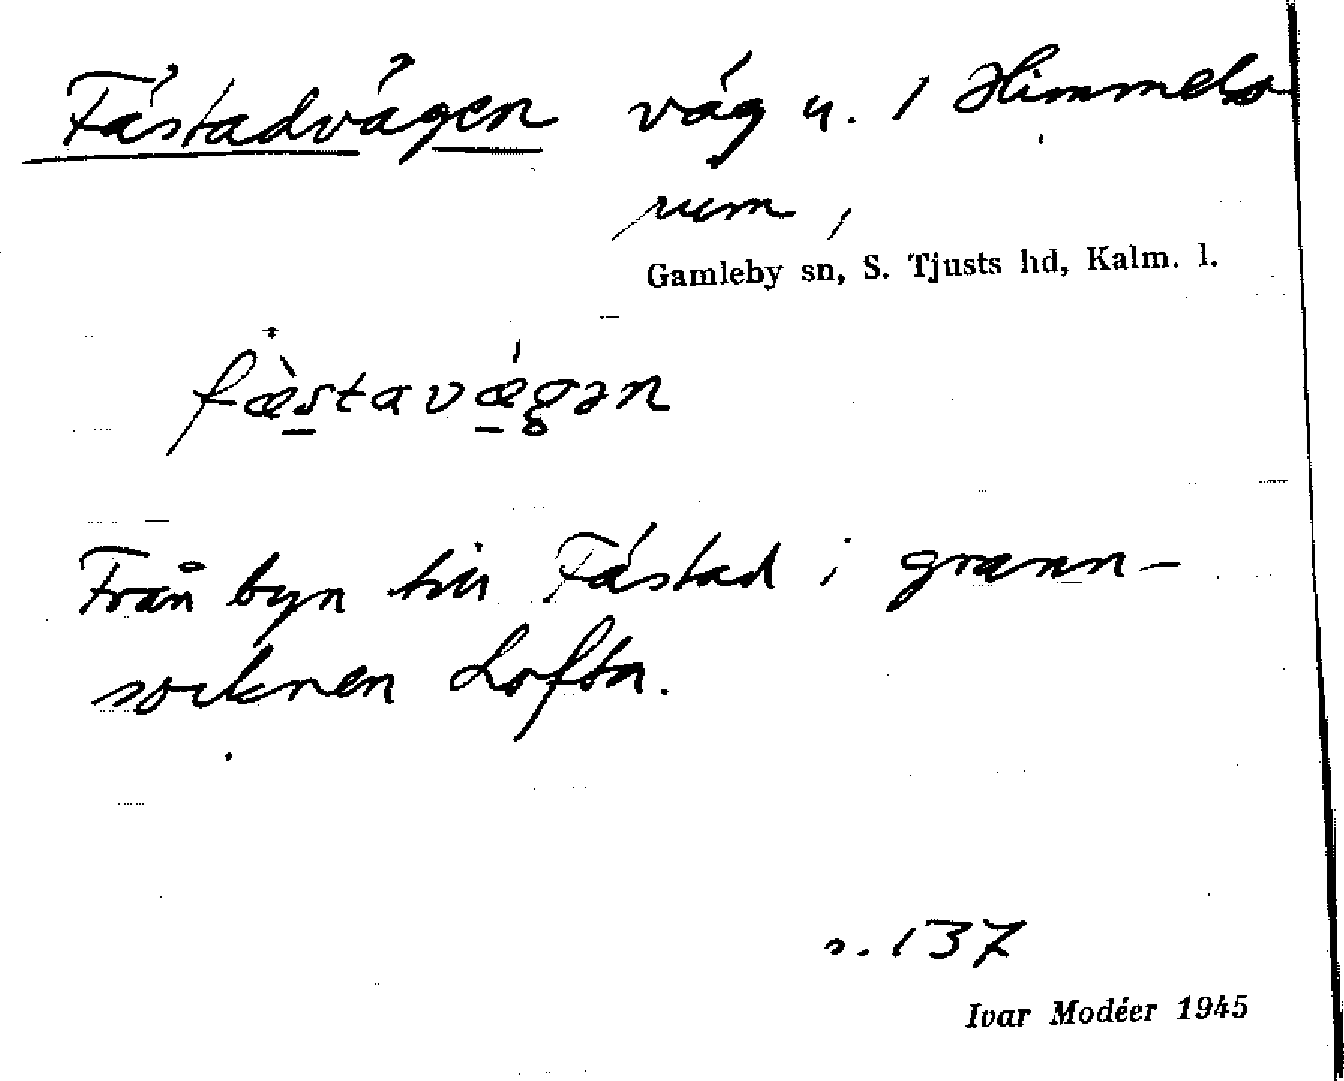 Fästadvägen väg u. 1 Himmels
rum,
Gamleby sn, S. Tjusts hd, Kalm. l.
fæ̀stavǽgən
Från byn till Fästad i grann-
socknen Lofta.
s. 137
Ivar Modéer 1945